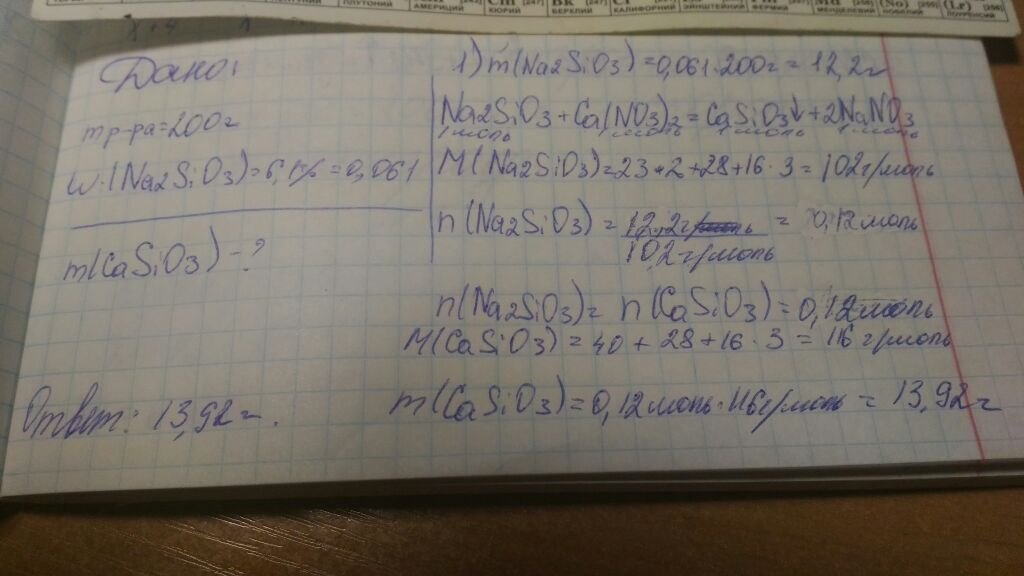 АМЕРИЦИЙ
ПЛУТОНИЙ
Cm [247]
КЮРИЙ
Bk [247]
БЕРКЛИЙ
КАЛИФОРНИЙ
ЭЙНШТЕЙНИЙ
ФЕРМИЙ
Md
МЕНДЕЛЕВИЙ
(No) [255]
НОБЕЛИЙ
(Lr) [256]
ЛОУРЕНСИЙ
Дано:
mр-ра=200г
w.(Na2SiO3)=6,1%=0,061
m(CaSiO3)-?
Ответ: 13,92г.
1) m(Na2SiO3)=0,061·200г=12,2г
Na2SiO3+Ca(NO3)2=CaSiO3↓+2NaNO3
1моль 1моль 1моль 1моль
M(Na2SiO3)=23*2+28+16·3=102г/моль
n(Na2SiO3) = 12,2г = 0,12моль
10,2г/моль
n(Na2SiO3)= n(CaSiO3)=0,12моль
M(CaSiO3)=40+28+16·3=116г/моль
m(CaSiO3)=0,12моль·116г/моль=13,92г